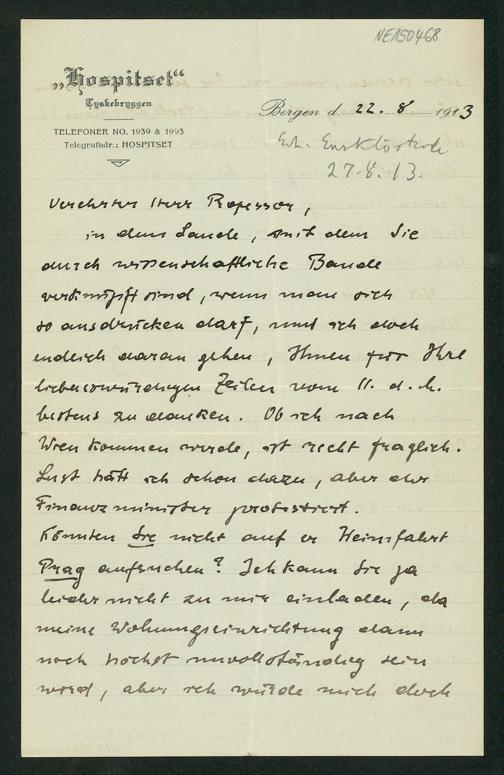 NE150468
„Hospitset“
Tyskebryggen
TELEFONER NO. 1939 & 1993
Telegrafadr.: HOSPITSET
Bergen d. 22. 8 1913
27.8.13.
Verehrter Herr Professor,
in dem Lande, mit dem Sie
durch wissenschaftliche Bande
verknüpft sind, wenn man sich
so ausdrücken darf, muß ich doch
endlich daran gehen, Ihnen für Ihre
liebenswürdigen Zeilen vom 11. d. M.
bestens zu danken. Ob ich nach
Wien kommen werde, ist recht fraglich.
Lust hätt ich schon dazu, aber der
Finanzminister protestiert.
Könnten Sie nicht auf er Heimfahrt
Prag aufsuchen? Ich kann Sie ja
leider nicht zu mir einladen, da
meine Wohnungseinrichtung dann
noch höchst unvollständig sein
wird, aber ich würde mich doch